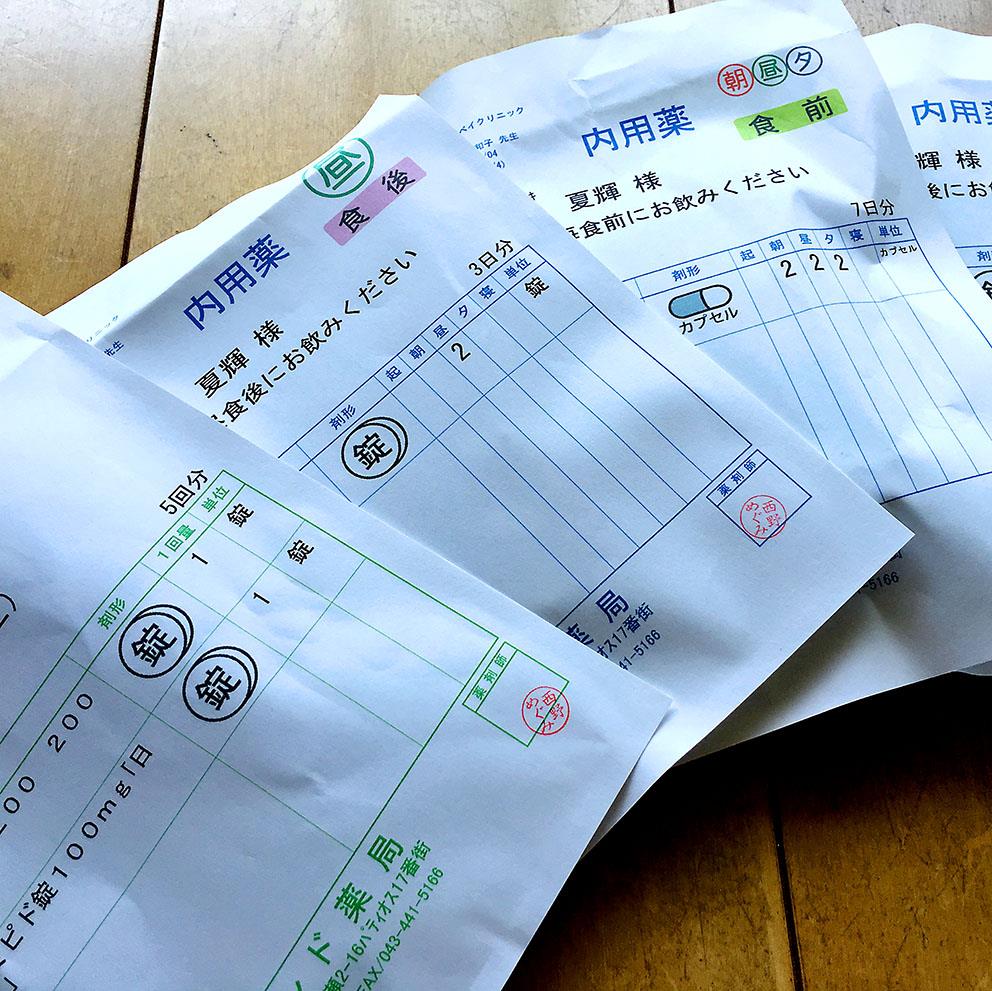 5回分
剤形 1回量 単位
錠 1 錠
錠 1 錠
200 200
ピド錠100mg「日
薬剤師
西野
めぐみ
ド薬局
瀬2-16パティオス17番街
FAX/043-441-5166
昼
食後
内用薬
夏輝 様
食後にお飲みください
3日分
剤形 起 朝 昼 夕 寝 単位
錠 2 錠
薬剤師
西野
めぐみ
薬局
ィオス17番街
41-5166
朝 昼 夕
食前
内用薬
ベイクリニック
和子 先生
夏輝 様
毎食前にお飲みください
7日分
剤形 起 朝 昼 夕 寝 単位
カプセル 2 2 2 カプセル
5166
内用薬
輝 様
後にお
剤